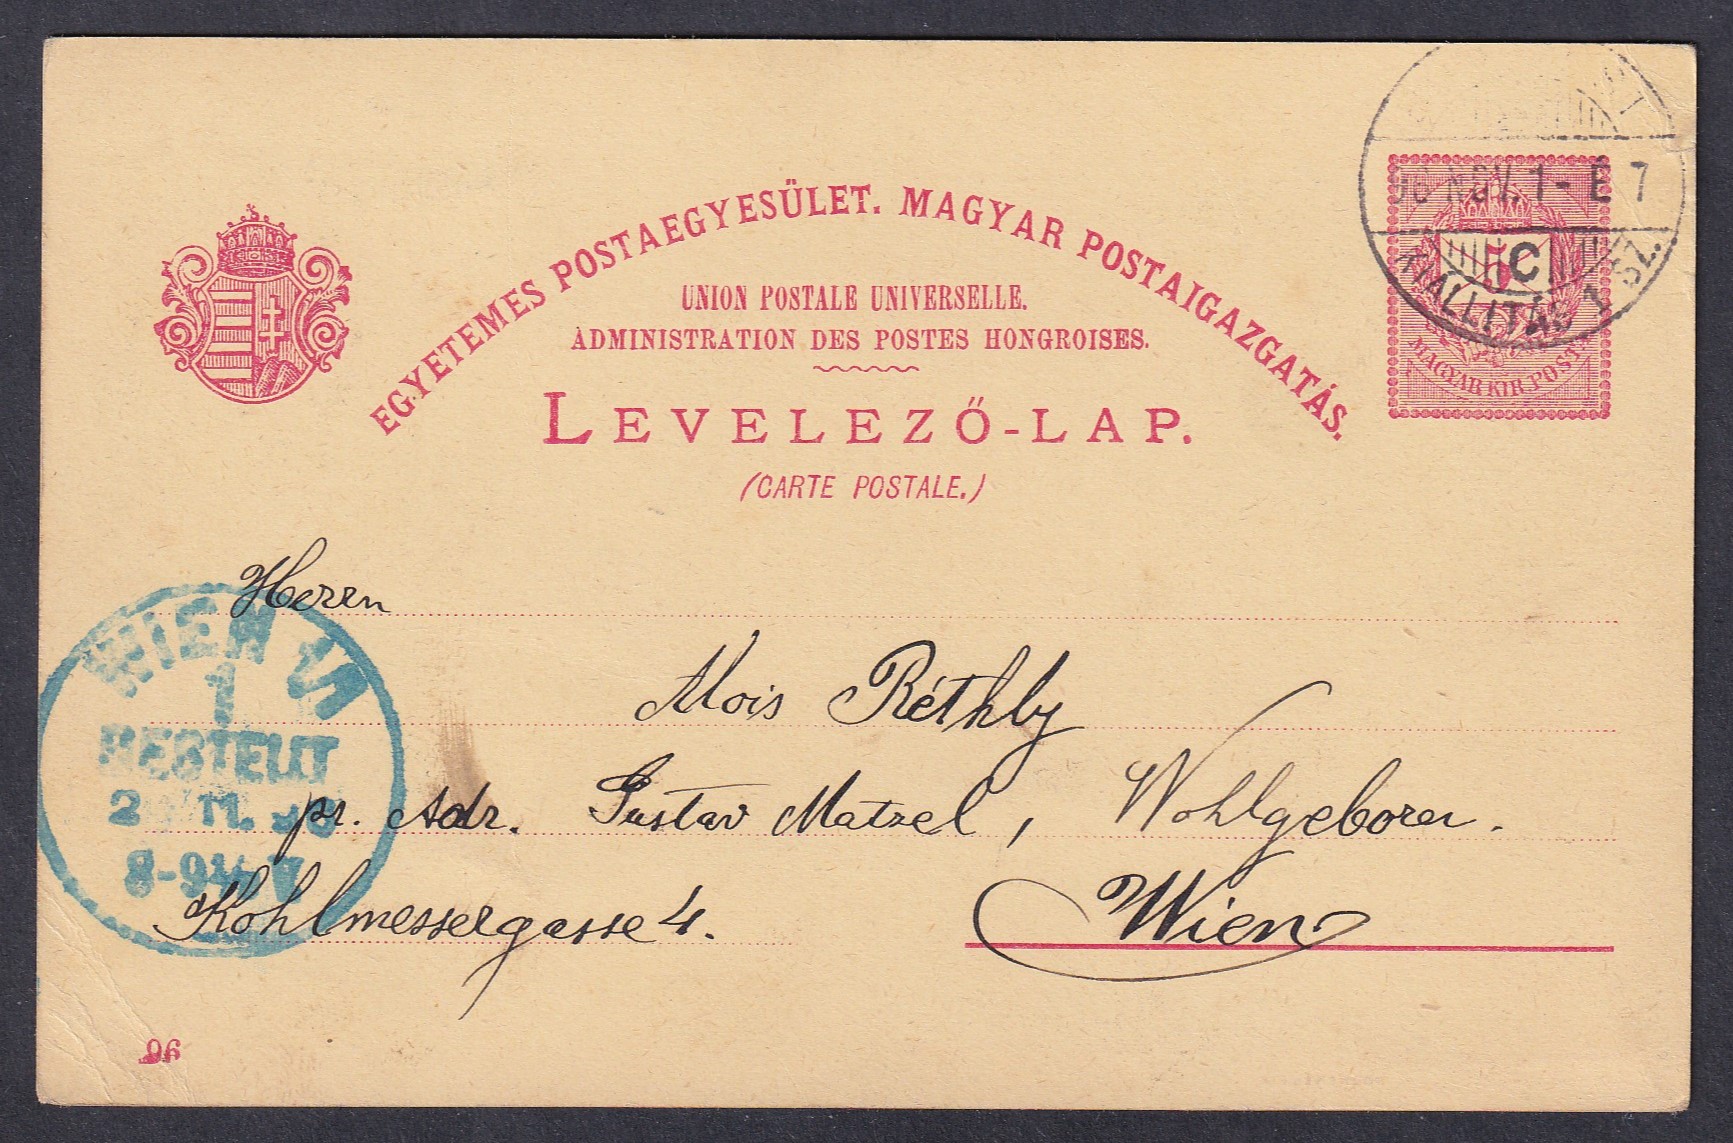 EGYETEMES POSTAEGYESÜLET. MAGYAR POSTAIGAZGATÁS.
UNION POSTALE UNIVERSELLE.
ADMINISTRATION DES POSTES HONGROISES.
LEVELEZŐ-LAP.
(CARTE POSTALE.)
96 NOV. 1 - E 7
C
KIÁLLITÁS 1 SZ.
5
MAGYAR KIR. POSTA
Herrn
Alois Réthby
pr. Adr. Gustav Matzel, Wohlgeboren.
Kohlmessergasse 4.
Wien
WIEN
1
BESTELLT
2 11. 96
8-9½ V
96